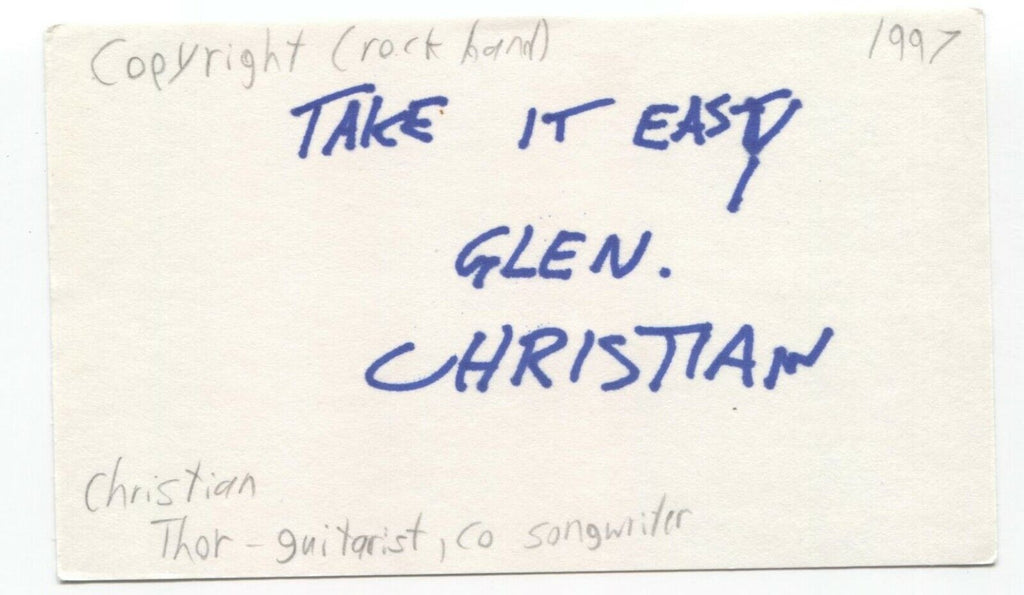 Copyright (rock band) 1997
TAKE IT EASY
GLEN.
CHRISTIAN
Christian
Thor - guitarist, co songwriter